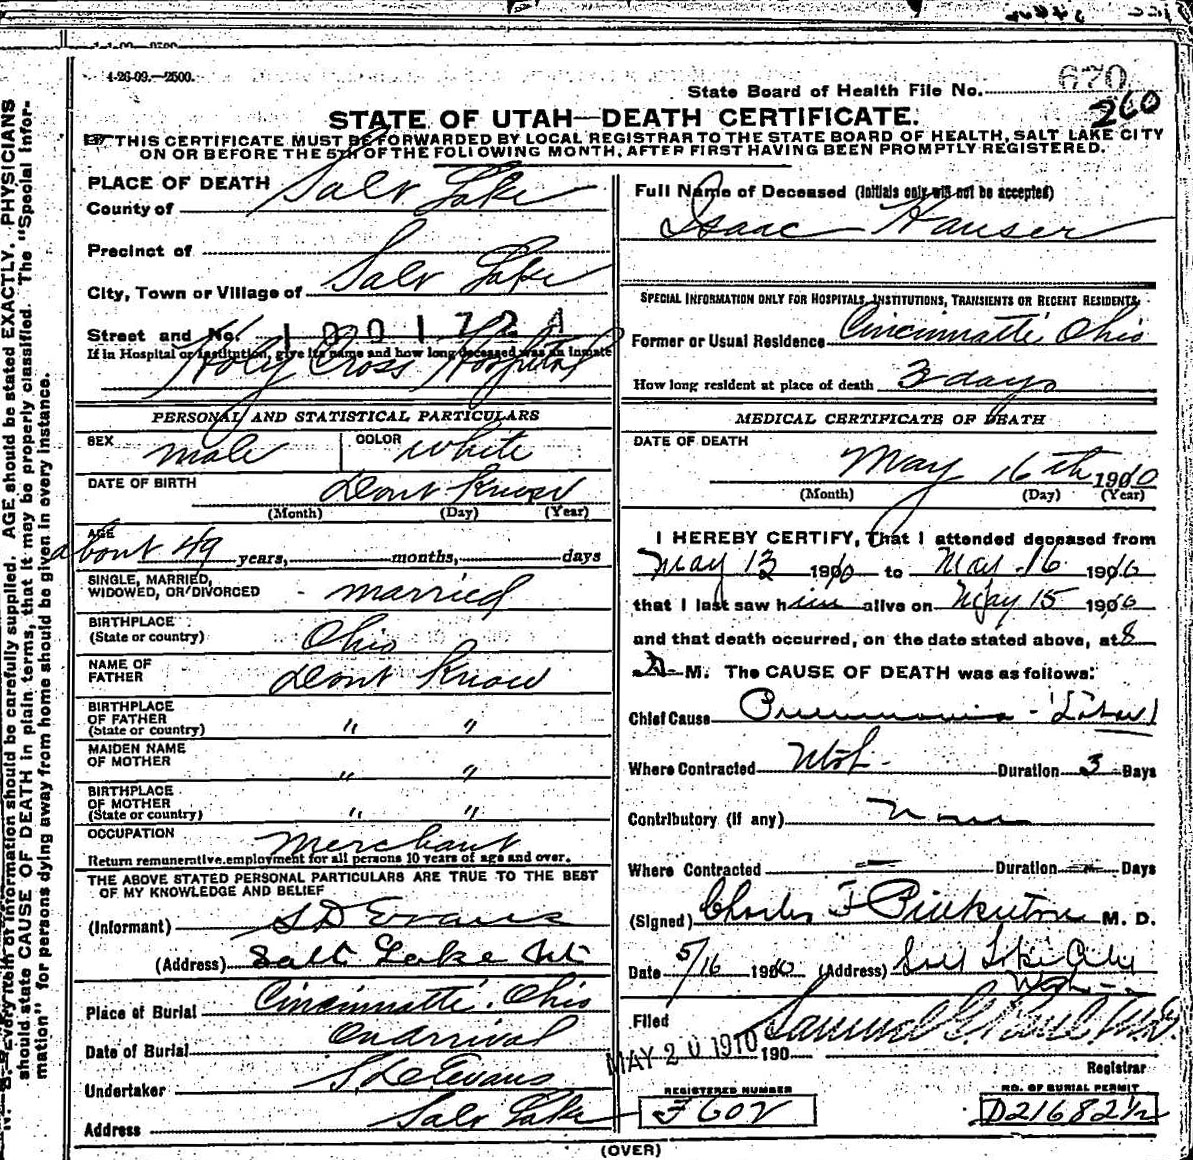 4-26-09.—2500.
State Board of Health File No. 670
260
STATE OF UTAH—DEATH CERTIFICATE.
THIS CERTIFICATE MUST BE FORWARDED BY LOCAL REGISTRAR TO THE STATE BOARD OF HEALTH, SALT LAKE CITY
ON OR BEFORE THE 5TH OF THE FOLLOWING MONTH, AFTER FIRST HAVING BEEN PROMPTLY REGISTERED.
PLACE OF DEATH
County of Salt Lake
Precinct of
City, Town or Village of Salt Lake
Street and No.
If in Hospital or Institution, give its name and how long deceased was an inmate
Holy Cross Hospital
PERSONAL AND STATISTICAL PARTICULARS
SEX male COLOR White
DATE OF BIRTH Dont Know
(Month) (Day) (Year)
AGE about 49 years, months, days
SINGLE, MARRIED,
WIDOWED, OR DIVORCED married
BIRTHPLACE
(State or country) Ohio
NAME OF
FATHER Dont Know
BIRTHPLACE
OF FATHER
(State or country) " "
MAIDEN NAME
OF MOTHER " "
BIRTHPLACE
OF MOTHER
(State or country) " "
OCCUPATION Merchant
Return remunerative employment for all persons 10 years of age and over.
THE ABOVE STATED PERSONAL PARTICULARS ARE TRUE TO THE BEST
OF MY KNOWLEDGE AND BELIEF
(Informant) S D Evans
(Address) Salt Lake Ut
Place of Burial Cincinnatti. Ohio
Date of Burial On arrival
Undertaker S. D. Evans
Address Salt Lake
Full Name of Deceased (Initials only will not be accepted)
Isaac Hauser
SPECIAL INFORMATION ONLY FOR HOSPITALS, INSTITUTIONS, TRANSIENTS OR RECENT RESIDENTS
Former or Usual Residence Cincinnatti Ohio
How long resident at place of death 3 days
MEDICAL CERTIFICATE OF DEATH
DATE OF DEATH
May 16th 1910
(Month) (Day) (Year)
I HEREBY CERTIFY, That I attended deceased from
May 13 1910 to May 16 1910
that I last saw him alive on May 15 1910
and that death occurred, on the date stated above, at 8
A M. The CAUSE OF DEATH was as follows:
Chief Cause Pneumonia - (Lobar)
Where Contracted Utah - Duration 3 Days
Contributory (if any) None
Where Contracted Duration Days
(Signed) Charles F Pinkerton M. D.
Date 5/16 1910 (Address) Salt Lake City
Utah
Filed
MAY 20 1910 190
Samuel G. Paul M.D.
Registrar
REGISTERED NUMBER
F602
NO. OF BURIAL PERMIT
D21682½
(OVER)
N. B.—Every item of information should be carefully supplied. AGE should be stated EXACTLY. PHYSICIANS
should state CAUSE OF DEATH in plain terms, that it may be properly classified. The "Special Infor-
mation" for persons dying away from home should be given in every instance.